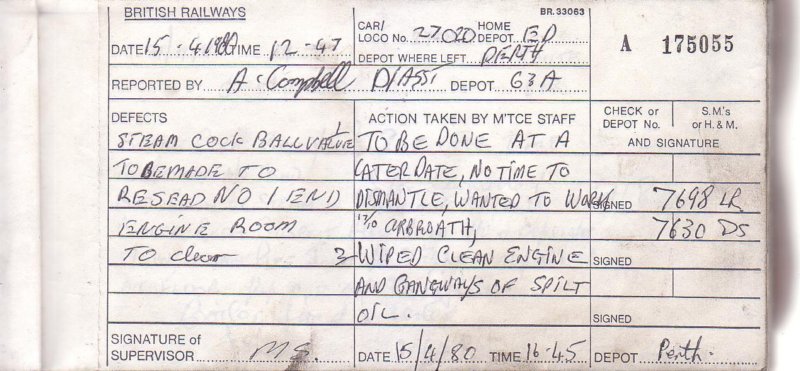 BRITISH RAILWAYS
BR. 33063
DATE 15-4-1980 TIME 12-47
CAR/ LOCO No. 27020 HOME DEPOT ED
DEPOT WHERE LEFT PERTH
A 175055
REPORTED BY A. Campbell D/ASST DEPOT 63A
DEFECTS
ACTION TAKEN BY M'TCE STAFF
CHECK or DEPOT No.
S.M.'s or H. & M.
AND SIGNATURE
STEAM COCK BALLVALVE
TO BE MADE TO
RESEAD NO 1 END
ENGINE ROOM
TO clean
1 TO BE DONE AT A
LATER DATE, NO TIME TO
DISMANTLE, WANTED TO WORK
ARBROATH,
2 WIPED CLEAN ENGINE
AND GANGWAYS OF SPILT
OIL.
SIGNED 7698 LR
7630 DS
SIGNED
SIGNED
SIGNATURE of SUPERVISOR MS.
DATE 15/4/80 TIME 16-45
DEPOT Perth.